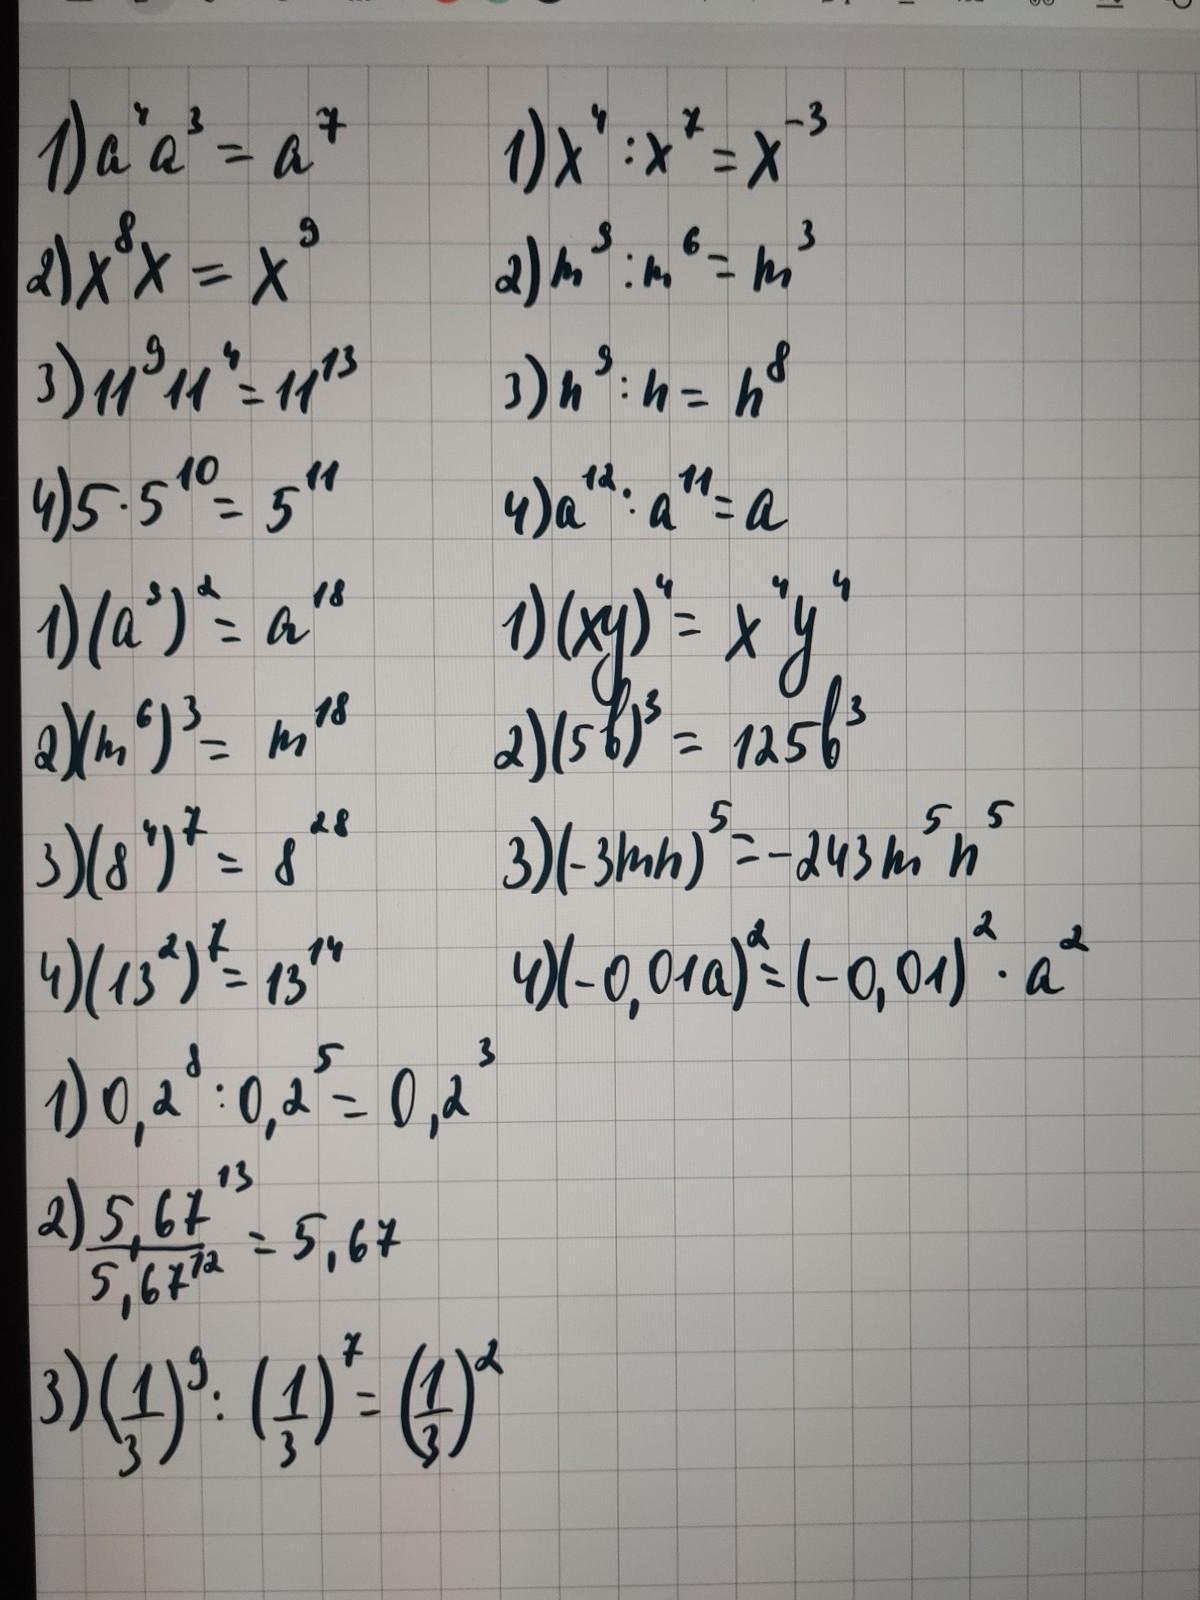 1) a⁴a³ = a⁷
2) x⁸x = x⁹
3) 11⁹11⁴ = 11¹³
4) 5·5¹⁰ = 5¹¹
1) (a⁹)² = a¹⁸
2) (m⁶)³ = m¹⁸
3) (8⁴)⁷ = 8²⁸
4) (13²)⁷ = 13¹⁴
1) 0,2⁸ : 0,2⁵ = 0,2³
2) 5,67¹³/5,67¹² = 5,67
3) (1/3)⁹ : (1/3)⁷ = (1/3)²
1) x⁴ : x⁷ = x⁻³
2) m⁹ : m⁶ = m³
3) n⁹ : n = n⁸
4) a¹² : a¹¹ = a
1) (xy)⁴ = x⁴y⁴
2) (5b)³ = 125b³
3) (-3mn)⁵ = -243m⁵n⁵
4) (-0,01a)² = (-0,01)² · a²